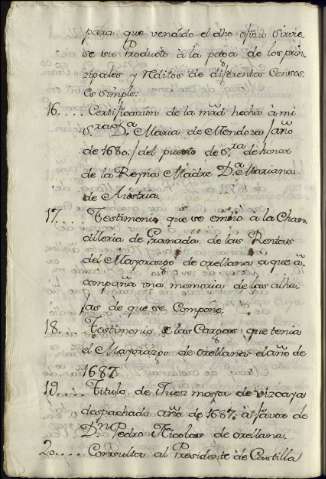 para que vendido el dho oficio sirvie
se su Producto à la paga de los prin
zipales y Reditos de diferentes Censos
Es simple.
16.... Certificacion de la mrd hecha à mi
Sra Da Maria de Mendoza / año
de 1680 / del puesto de Sra de honor
de la Reyna Madre Da Mariana
de Austria
17.... Testimonio que se embio a la Chan
cilleria de Granada de las Rentas
del Mayorazgo de orellana a que a
compaña una memoria de las alha
jas de que se Compone.
18.... Testimonio de las Cargas que tenia
el Mayorazgo de orellana el año de
1687
19.... Titulo de Juez mayor de vizcaya
despachado año de 1687 à favor de
Dn Pedro Nicolas de orellana.
20.... Consultas al Presidente de Castilla